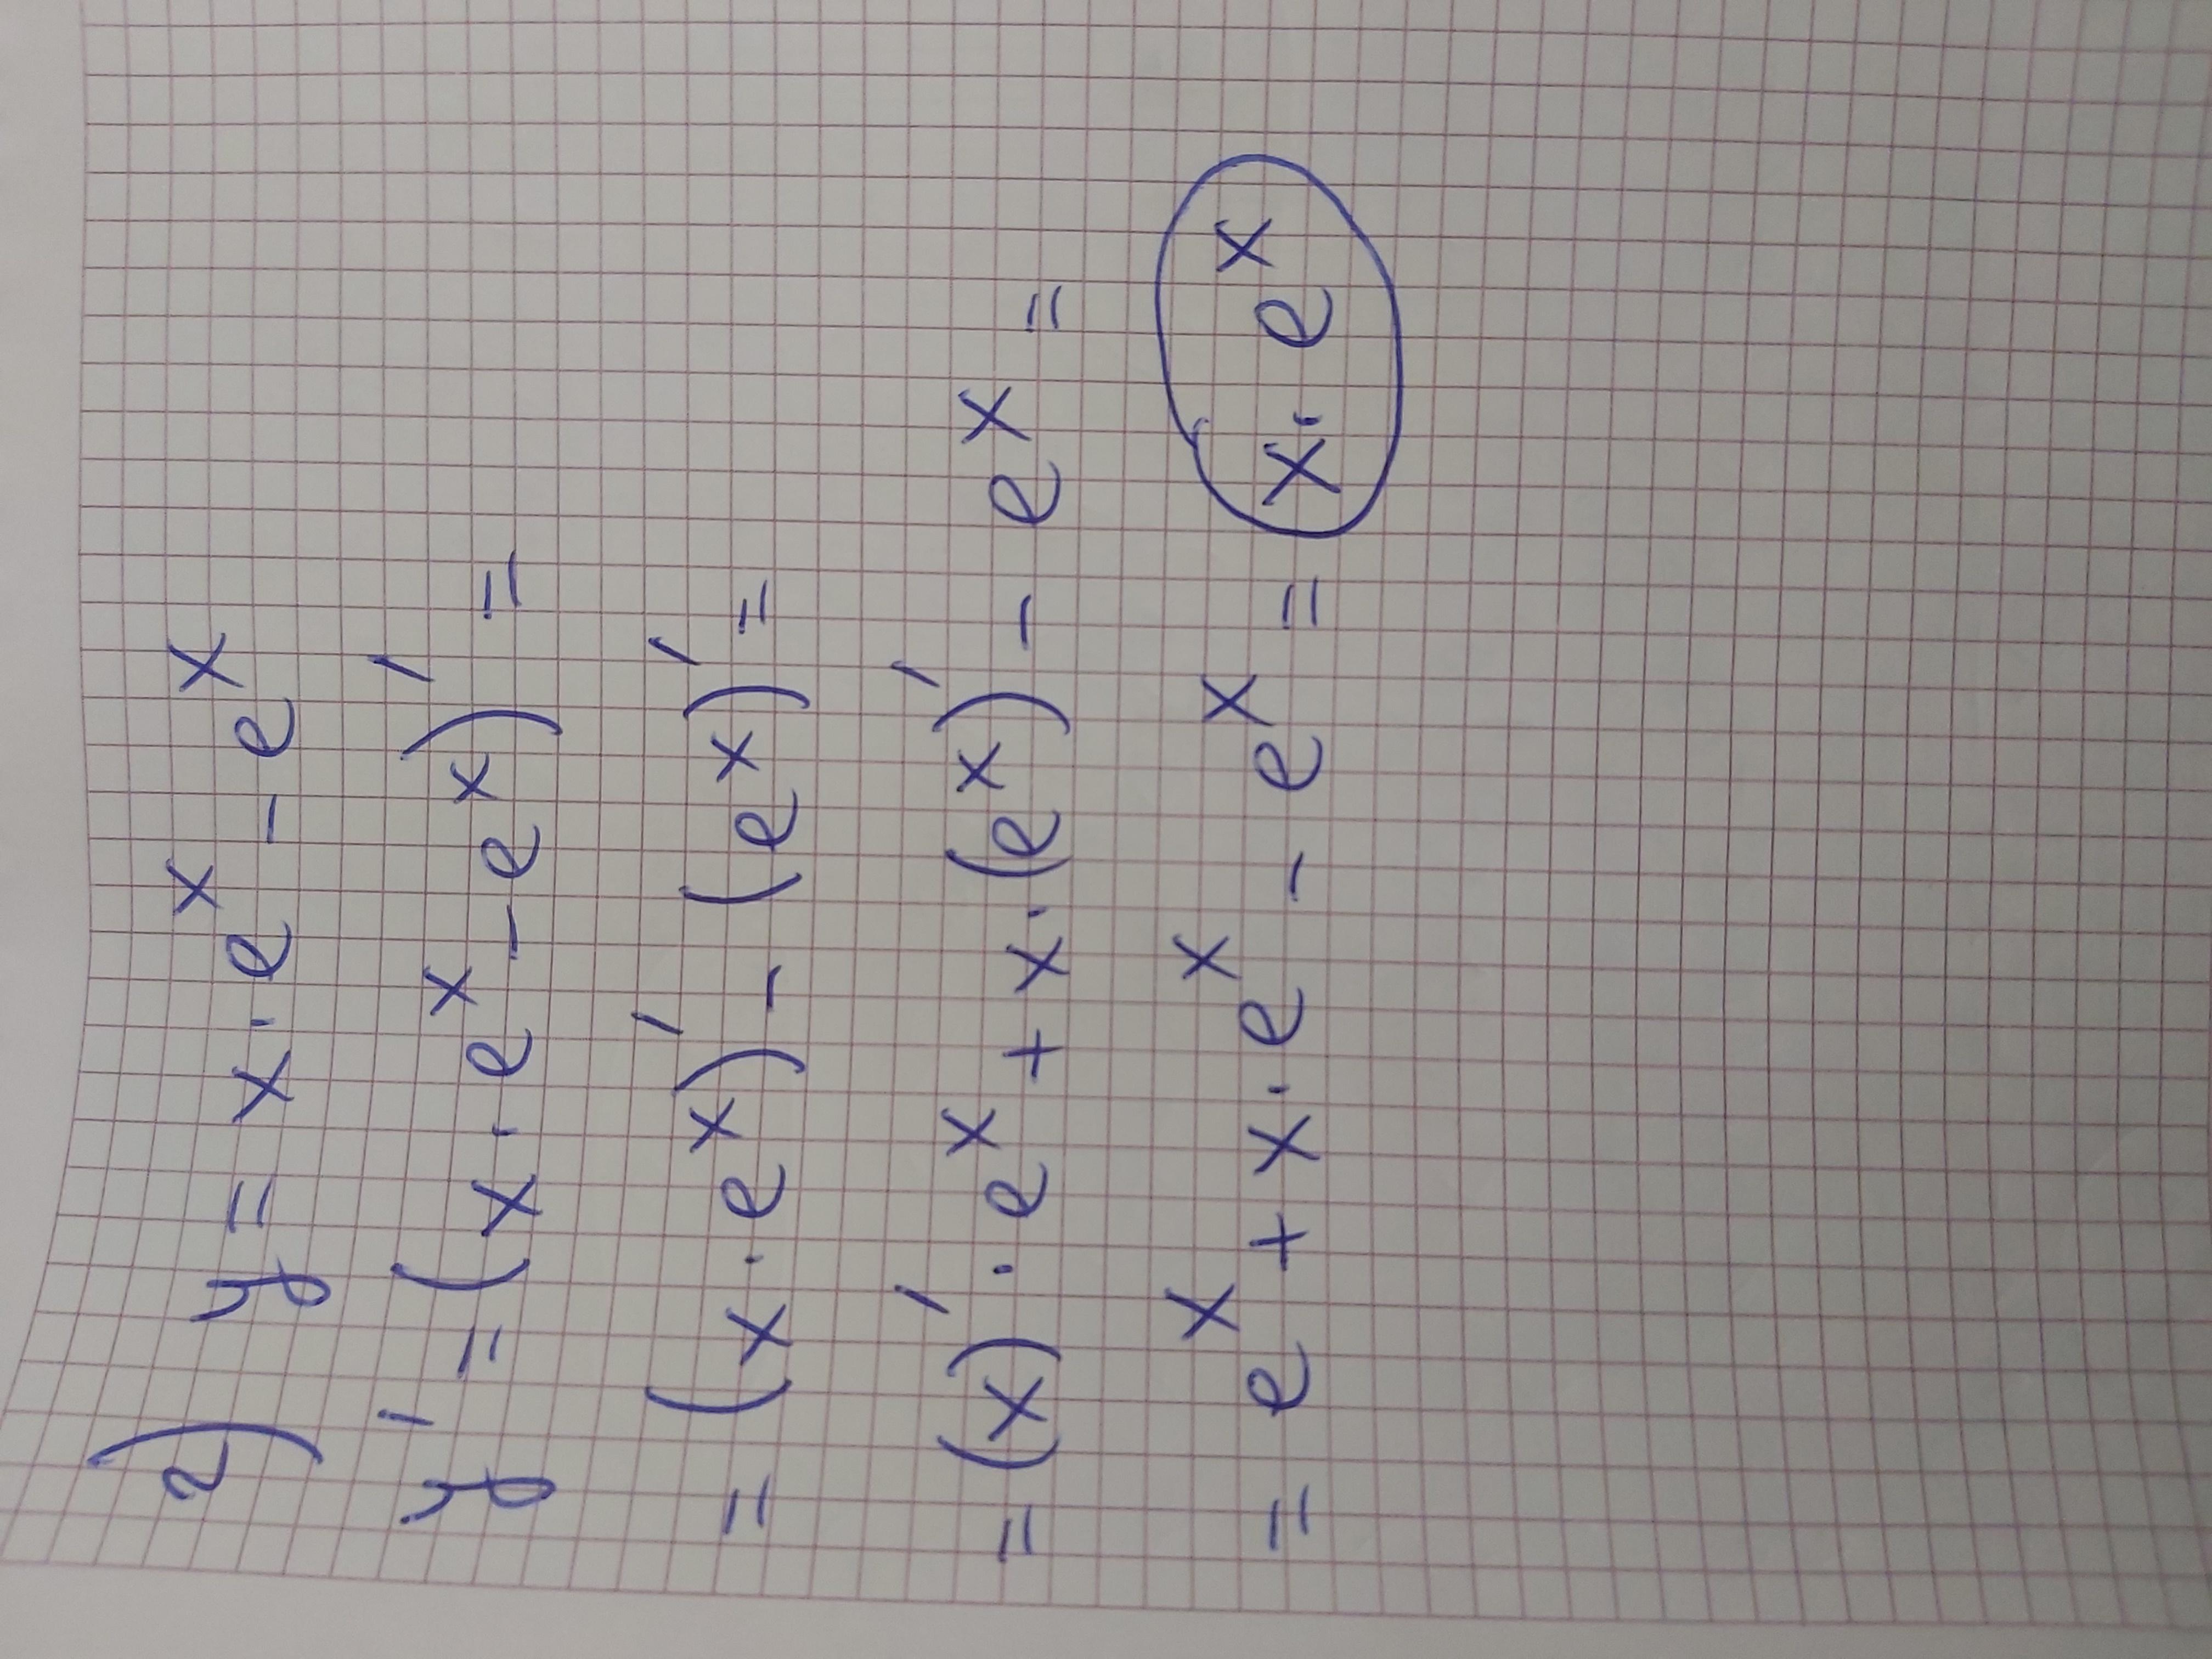 2) y = x·eˣ - eˣ
y' = (x·eˣ - eˣ)' =
= (x·eˣ)' - (eˣ)' =
= (x)'·eˣ + x·(eˣ)' - eˣ =
= eˣ + x·eˣ - eˣ = x·eˣ